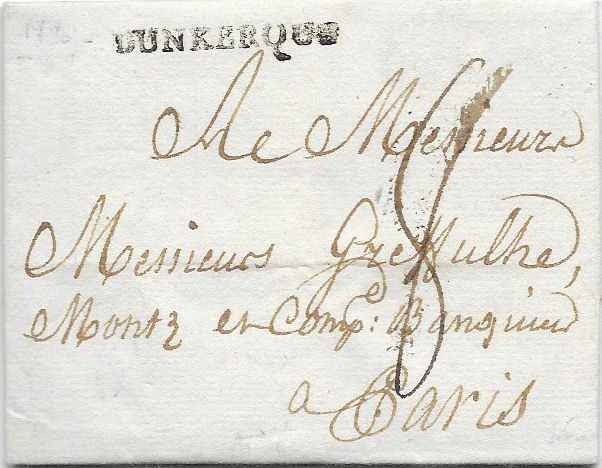 DUNKERQUE
A Messieurs
Messieurs Greffulhe,
Montz et Comp.e: Banquiers
a Paris
8